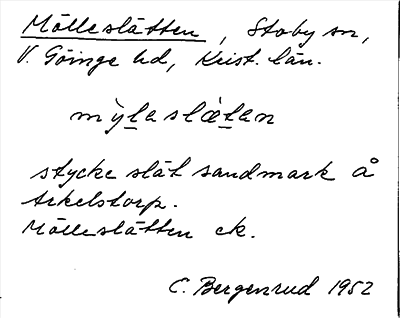 Mölleslätten, Stoby sn,
V. Göinge hd, Krist. län.
mỳlaslætan
stycke slät sandmark å
Arkelstorp.
Mölleslätten ek.
C. Bergenrud 1952